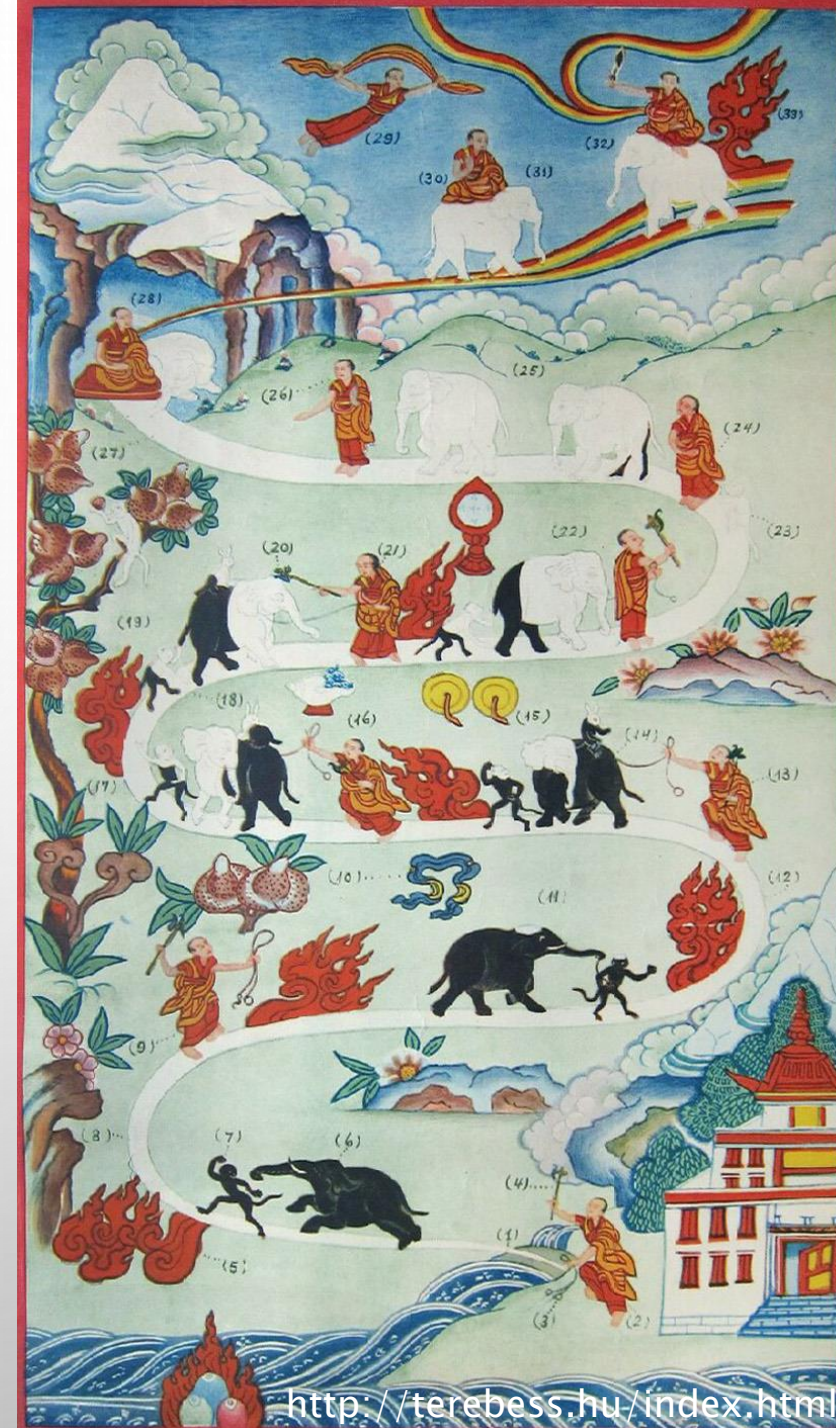 (29)
(32)
(33)
(30)
(31)
(28)
(25)
(26)
(24)
(27)
(23)
(20)
(21)
(22)
(19)
(18)
(16)
(15)
(14)
(17)
(13)
(10)
(12)
(11)
(9)
(8)
(7)
(6)
(4)
(1)
(5)
(3)
(2)
http://terebess.hu/index.html